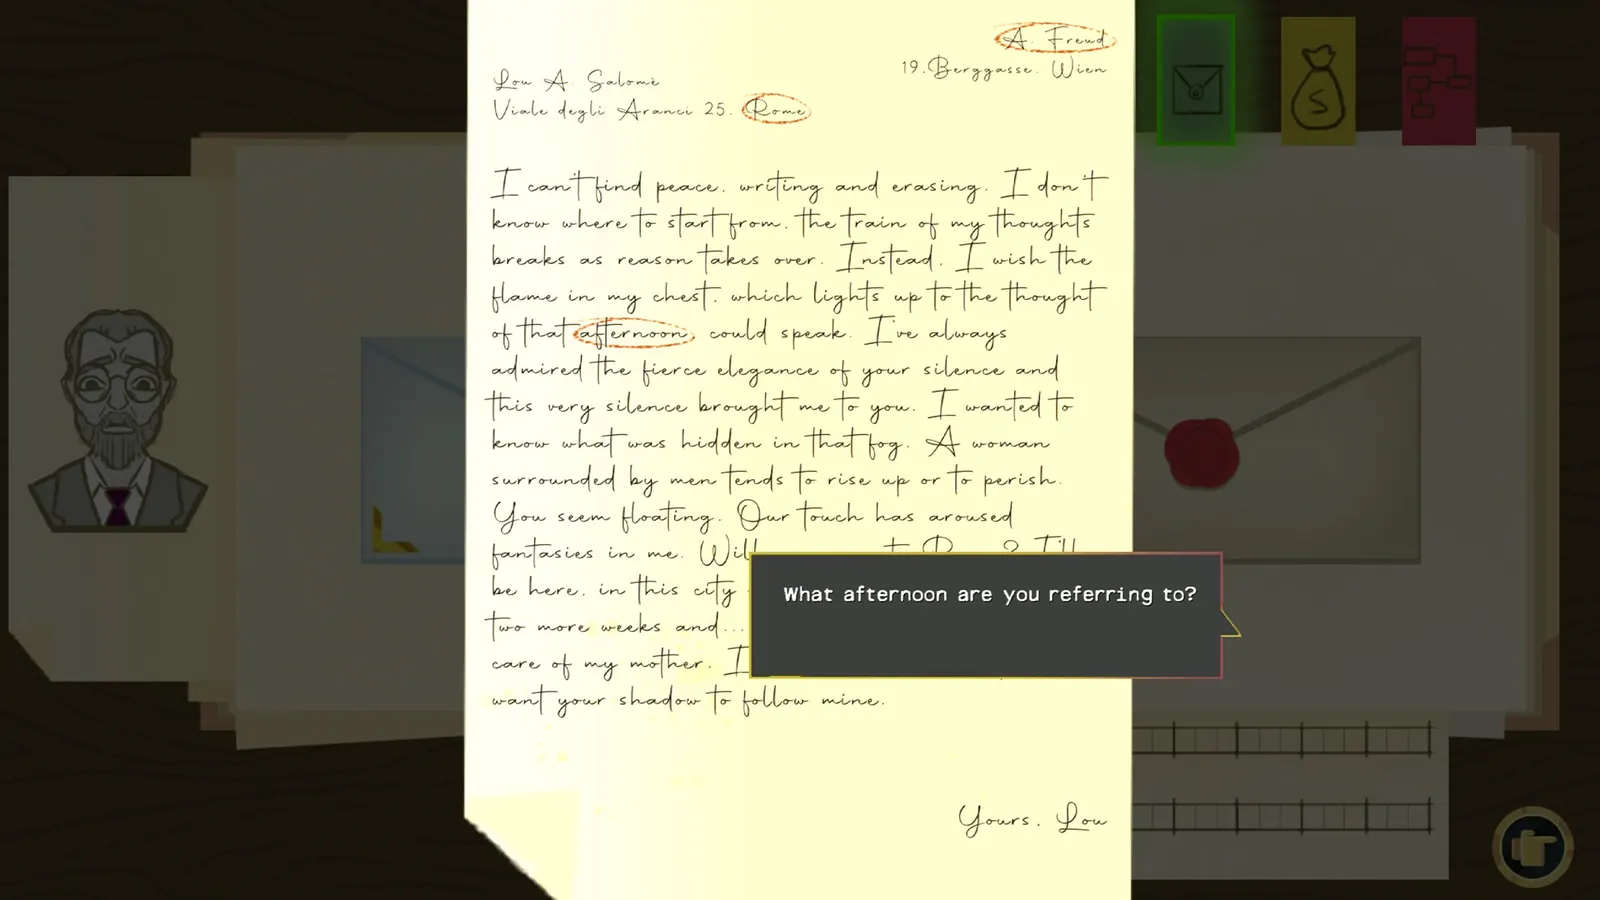 A. Freud
19. Berggasse. Wien
Lou A. Salomè
Viale degli Aranci 25. Rome
I can't find peace. writing and erasing. I don't
know where to start from. the train of my thoughts
breaks as reason takes over. Instead. I wish the
flame in my chest. which lights up to the thought
of that afternoon. could speak. I've always
admired the fierce elegance of your silence and
this very silence brought me to you. I wanted to
know what was hidden in that fog. A woman
surrounded by men tends to rise up or to perish.
You seem floating. Our touch has aroused
fantasies in me.
be here. in this city
two more weeks and...
care of my mother. I
want your shadow to follow mine.
What afternoon are you referring to?
Yours. Lou